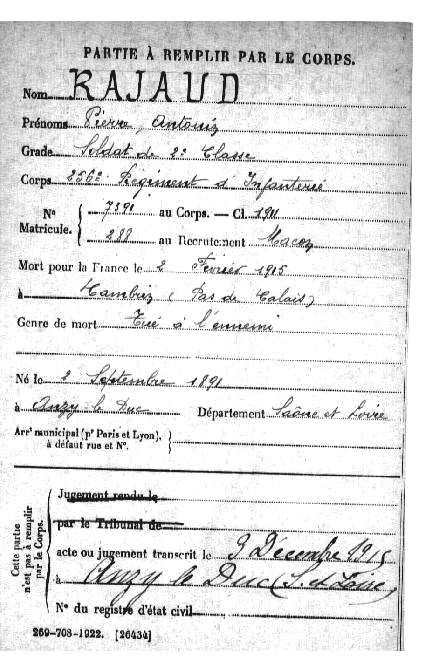 PARTIE À REMPLIR PAR LE CORPS.
Nom RAJAUD
Prénoms Pierre, Antoine
Grade Soldat de 2e Classe
Corps 256e Régiment d'Infanterie
N° Matricule. { 7391 au Corps. — Cl. 1911
288 au Recrutement Macon
Mort pour la France le 2 Février 1915
à Cambrin (Pas de Calais)
Genre de mort Tué à l'ennemi
Né le 2 Septembre 1891
à Anzy le Duc Département Saône et Loire
Arrt municipal (pr Paris et Lyon), à défaut rue et N°. {
Cette partie n'est pas à remplir par le Corps.
Jugement rendu le
par le Tribunal de
acte ou jugement transcrit le 9 Décembre 1915
à Anzy le Duc (S. et Loire)
N° du registre d'état civil
269-708-1922. [26434]